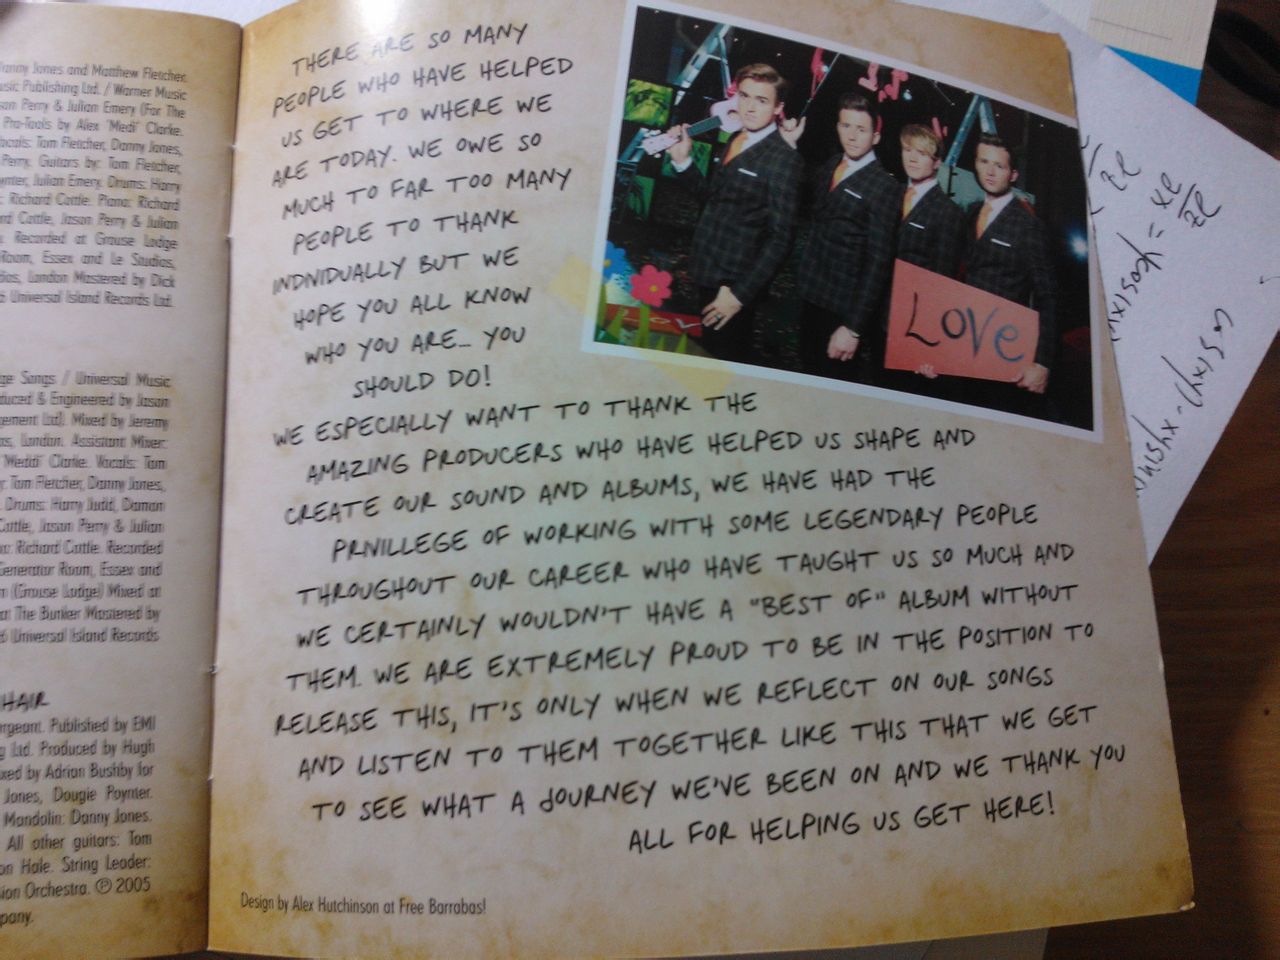 Danny Jones and Matthew Fletcher.
Music Publishing Ltd. / Warner Music
Jason Perry & Julian Emery (For The
Pro-Tools by Alex 'Medi' Clarke.
Vocals: Tom Fletcher, Danny Jones,
Perry. Guitars by: Tom Fletcher,
Poynter, Julian Emery. Drums: Harry
Richard Cottle. Piano: Richard
Cottle, Jason Perry & Julian
Recorded at Grouse Lodge
Room, Essex and Le Studios,
London Mastered by Dick
Universal Island Records Ltd.
Songs / Universal Music
Produced & Engineered by Jason
Ltd). Mixed by Jeremy
London. Assistant Mixer:
'Meddi' Clarke. Vocals: Tom
Tom Fletcher, Danny Jones,
Drums: Harry Judd, Damon
Cottle, Jason Perry & Julian
Richard Cottle. Recorded
Generator Room, Essex and
(Grouse Lodge) Mixed at
at The Bunker Mastered by
Universal Island Records
HAIR
Published by EMI
Ltd. Produced by Hugh
Mixed by Adrian Bushby for
Jones, Dougie Poynter.
Mandolin: Danny Jones.
All other guitars: Tom
Hale. String Leader:
Orchestra. ℗ 2005
THERE ARE SO MANY
PEOPLE WHO HAVE HELPED
US GET TO WHERE WE
ARE TODAY. WE OWE SO
MUCH TO FAR TOO MANY
PEOPLE TO THANK
INDNIDUALLY BUT WE
HOPE YOU ALL KNOW
WHO YOU ARE... YOU
SHOULD DO!
WE ESPECIALLY WANT TO THANK THE
AMAZING PRODUCERS WHO HAVE HELPED US SHAPE AND
CREATE OUR SOUND AND ALBUMS, WE HAVE HAD THE
PRIVILLEGE OF WORKING WITH SOME LEGENDARY PEOPLE
THROUGHOUT OUR CAREER WHO HAVE TAUGHT US SO MUCH AND
WE CERTAINLY WOULDN'T HAVE A "BEST OF" ALBUM WITHOUT
THEM. WE ARE EXTREMELY PROUD TO BE IN THE POSITION TO
RELEASE THIS, IT'S ONLY WHEN WE REFLECT ON OUR SONGS
AND LISTEN TO THEM TOGETHER LIKE THIS THAT WE GET
TO SEE WHAT A JOURNEY WE'VE BEEN ON AND WE THANK YOU
ALL FOR HELPING US GET HERE!
Design by Alex Hutchinson at Free Barrabas!
LOVE
LOVe